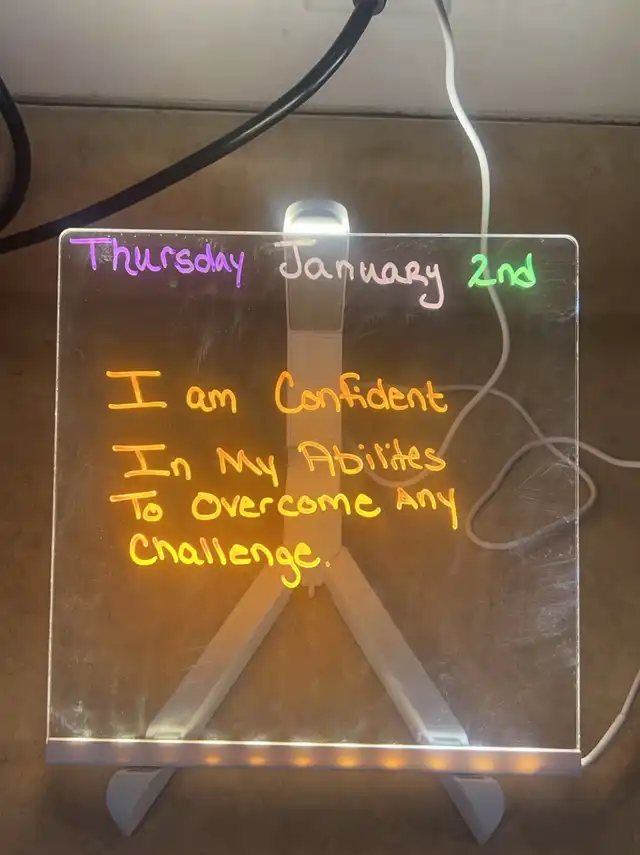 Thursday January 2nd
I am Confident
In My Abilites
To Overcome Any
Challenge.